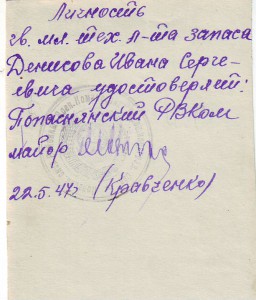 Личность
гв. мл. тех. л-та запаса
Денисова Ивана Серге-
евича удостоверяет:
Попаснянский РВКом
майор
22.5.47г (Кравченко)